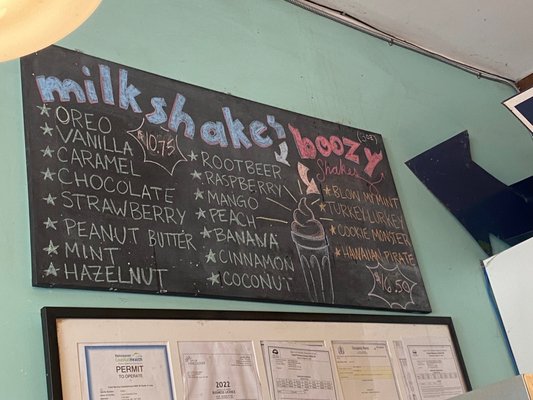 milkshakes
$10.75
★ OREO
★ VANILLA
★ CARAMEL
★ CHOCOLATE
★ STRAWBERRY
★ PEANUT BUTTER
★ MINT
★ HAZELNUT
★ ROOTBEER
★ RASPBERRY
★ MANGO
★ PEACH
★ BANANA
★ CINNAMON
★ COCONUT
boozy
shakes
★ BLOW MY MINT
★ TURKEY LURKEY
★ COOKIE MONSTER
★ HAWAIIAN PIRATE
$16.50
PERMIT
TO OPERATE
2022